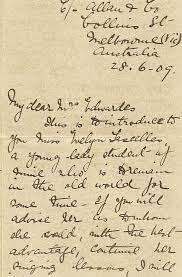 c/- Allan & Co
Collins St
Melbourne (Vic)
Australia
28-6-09.
My dear Mrs Edwardes
This is to introduce to
you Miss Evelyn
a young lady student of
mine who is to remain
in the old world for
some time - If you will
advise her as to whom
she could, with the best
advantage, continue her
singing lessons, I will